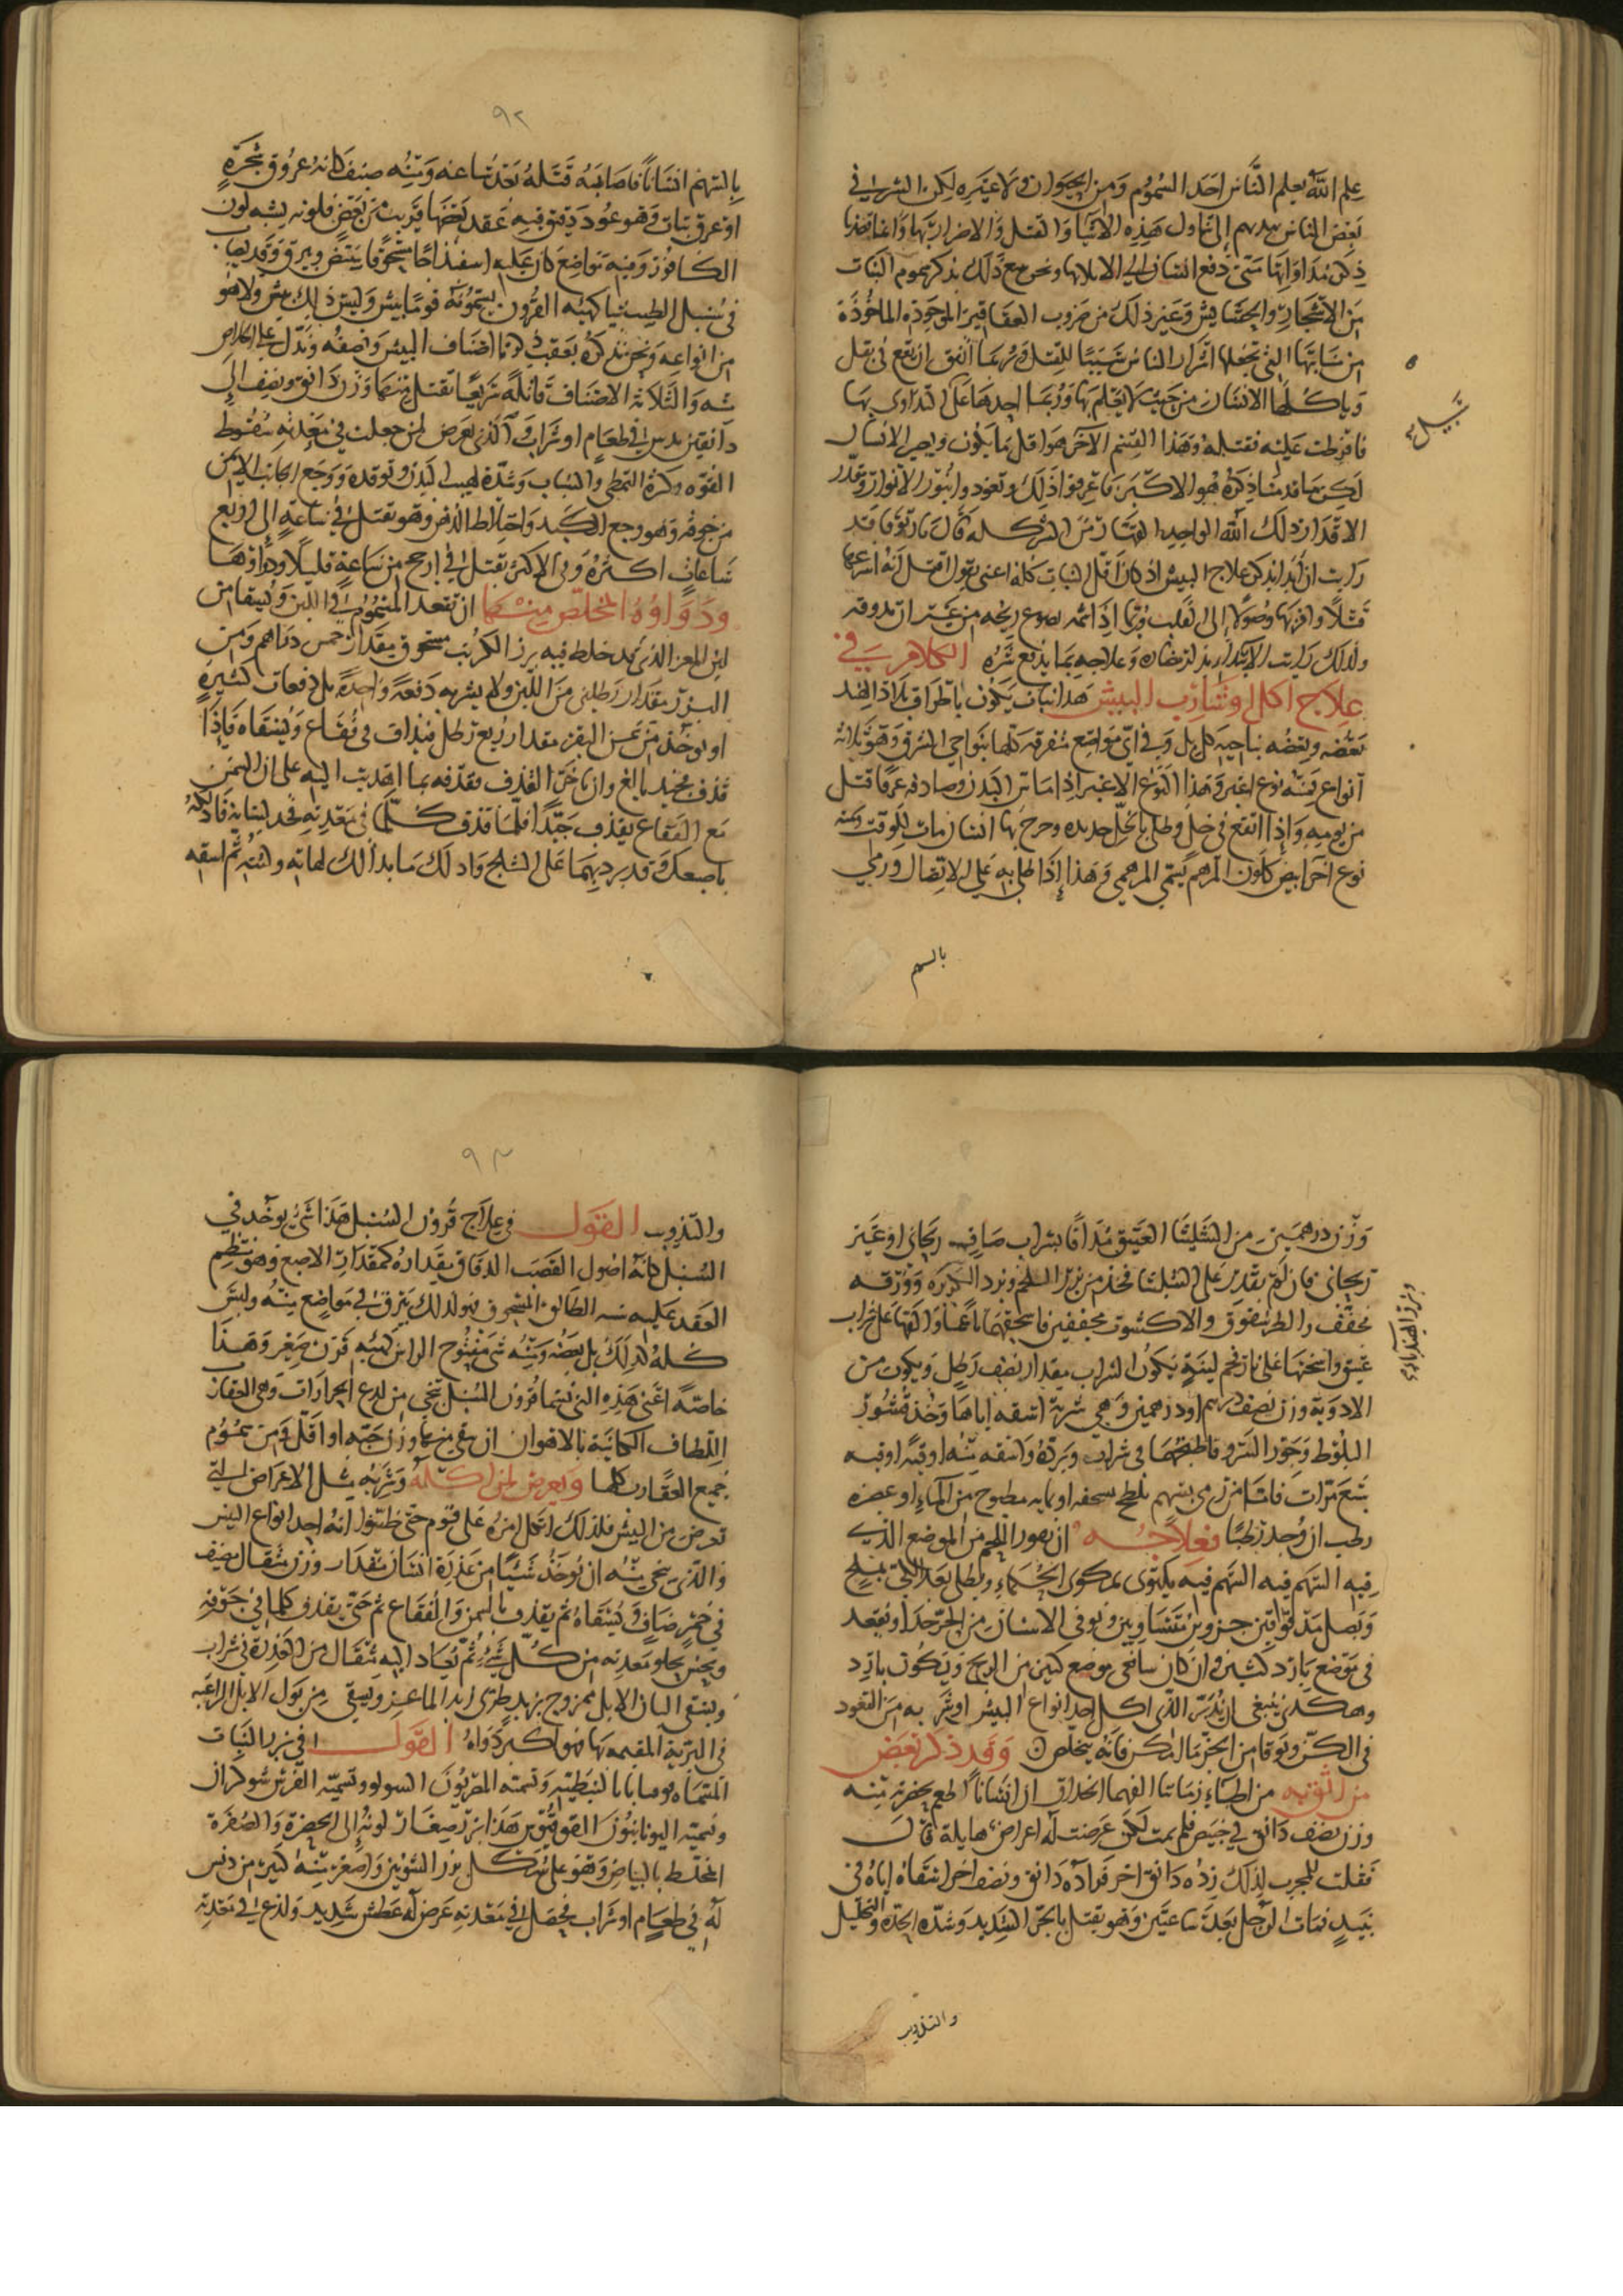 علم الله يعلم الناس احد السموم ومن الحيوان ولا غيره لكن الشر في
بعض الناس يديهم إلى تناول هذه الاشيا والقتل والاضرار بها واغناهذا
ذكر مداواتها متى دفع انسان إلى الابلا بها ونحن مع ذلك نذكر سموم النبات
من الاشجار والحشايش وغير ذلك من ضروب العقاقير الموجوده الماخوذة
من نباتها التي تجعلها اشرار الناس سببا للقتل وربما اتفق ان تقع في بقل
وياكلها الانسان من حيث لا يعلم بها وربما احدها على التداوي بها
فافرطت عليه فقتله وهذا القسم الآخر هو اقل ما يكون ويصير الانسان
لكن ما قدمنا ذكره هو الاكثر فاعرفوا ذلك وتعوذوا بنور الانوار وقدر
الاقدار ذلك الله الواحد القهار من الشر كله قال ياربوقا قد
رايت ان ابدا بذكر علاج البيش اذ كان اقل النبات كله اعني بقول اقتل انه اسرعها
قتلا واقربها وصولا الى القلب وربما اذا شمه ريحه من غير ان يذوقه
ولذلك رايت الابتدا بذكر مضاره وعلاجه بما يدفع شره الكلام في
علاج اكل او شارب البيش هذا نبات يكون باطراف بلاد الهند
بعضه وبعضه بناحية كابل وفي اي مواضع متفرقه كلها بنواحي الشرق وهو ثلاثة
انواع منه نوع اغبر وهذا النوع الاغبر اذا ماس البدن وصادف عرقا قتل
من يومه واذا انقع في خل وطلي بالخل حديده وجرح بها انسان مات للوقت ومنه
نوع اخر ابيض كلون المرهم يسمى المرهمي وهذا إذا طلي به على الاتصال ورمي
سبيل
بالسهم
٩٢
بالسهم انسانا فاصابه قتله بعد ساعه ومنه صنف كانه عروق شجرة
او عرق نبات وهو عود دقيق فيه عقد بعضها قريب من بعض فلونه يشبه لون
الكافور وفيه مواضع كان عليه اسفيداجا مسحوقا يبيض ويبرق وقد يصاب
في سنبل الطيب شيا كهيئه القرون يسمونه قوما بيش وليس ذلك بيش ولا هو
من انواعه ونحن نذكره بعقب ذكرنا اصناف البيش ونصفه وندل على
شه والثلاثة الاصناف قاتلة سريعا تقتل منها وزن دانق ونصف إلى
دانقين يدس في طعام او شراب والذي يعرض لمن جعلت في معدته سقوط
القوه وكثرة التمطي والتثاب وشدة لهيب البدن وتوقده ووجع الجانب الايمن
من جوفه وهو وجع الكبد واختلاط الذهن وهو يقتل في ساعة إلى اربع
ساعات اكثره وفي الاكثر يقتل في ارجح من ساعة قليلا ودواوها
ودواوه المخلص منها ان تقعد المسموم في اللبن ويسقا من
لبن المعز الذي قد خلط فيه بزر الكرنب مسحوق مقدار خمس دراهم ومن
البزر مقدار رطلين من اللبن ولا يشربه دفعة واحدة بل دفعات كثيرة
او يوخذ من سمن البقر مقدار ربع رطل فيذاف في فقاع ويسقاه فاذا
قذف فجيد بالغ وان تاخر القذف فقذفه بما اهديت اليه على ان السمن
مع الفقاع يقذف جيدا فلما قذف كلما في معدته فخذ لسانه فادلكه
باصبعك وقد بردهما على الثلج وادلك ما بدا لك لهاته ولثته ثم اسقه
وزن درهمين من الشليثا العتيق مذافا بشراب صافي ريحاني او غير
ريحاني فان لم يقدر على الشليثا فخذ من بزر السلجم وبزر الكزبره وورقه
مجفف والطريفوق والاكشوت مجففين فاسحقهما ناعما والقها على شراب
عتيق واسخنها على نار فحم لينة يكون الشراب مقدار نصف رطل ويكون من
الادوية وزن نصف درهم او درهمين وهي شربة اسقه اياها وخذ قشور
البلوط وجوز السرو فاطبخهما في شراب وبرده واسقه منه اوقية اوقيه
سبع مرات فاما من رمي بسهم بلطخ بسحقه او بمايه مطبوخ من الماء او عصره
رطب ان وجد رطبا فعلاجه ان يقور اللحم من الموضع الذي
فيه السهم فيه السهم فيه يكتوى بمكوى الحماء ويطلى بعد الكي بملح
وبصل مدقوقين جزوين متساويين ويوقى الانسان من الحر جدا ويقعد
في موضع بارد كثير وان كان سافى موضع كنين من الريح ويكون بارد
وهكذي ينبغي ان يدبر الذي اكل احد انواع البيش او شربه من القعود
في الكن ويوقا من الحر مالمكن فانه يتخلص وقد ذكر بعض
من اثق به من اطباء زماننا الفهما الحذاق ان انسانا اطعم بحضرته منه
وزن نصف دانق في خبيص فلم يمت لكن عرضت له اعراض هايلة قال
فقلت للمجرب لذلك زده دانق اخر فزاده دانق ونصف اخر اسقاه اياه في
نبيذ فمات الرجل بعد ساعتين وهو يقتل بالحر الشديد وشدة الحده والتحليل
بزر الهندباء
والتذويب
٩٣
والتذويب القول في علاج قرون السنبل هذا شي يوخذ في
السنبل كانه اصول القصب الدقاق مقداره كمقدار الاصبع وهو عظيم
العقد عليه شبه الطالق المسحوق فهو لذلك يبرق في مواضع منه وليس
كله كذلك بل بعضه ومنه شي مفتوح الراس كهيئه قرن صغير وهذا
خاصة اعني هذه التي نسميها قرون السنبل تنجي من لدغ الجرارات وهي العقارب
اللطاف الكاينة بالاهواز ان يسقى منها وزن حبه او اقل ومن سموم
جميع العقارب كلها ويعرض لمن اكله وشربه مثل الاعراض التي
تعرض من البيش فلذلك اشكل امره على قوم حتى ظنوا انه احد انواع البيش
والذي ينجي منه ان يوخذ شيا من عذرة انسان مقدار وزن مثقال يضيف
في خمر صاف ويسقاه ثم يقذف بالسمن والفقاع ثم حتى يقذف كلما في جوفه
ويحس بخلو معدته من كل شي ثم تعاد اليه مثقال من العذرة في شراب
ويسقى البان الابل ممزوج بزبد طري ابدا الماعز ويسقى من بول الابل الراعيه
في البرية المقيمه بها فهو اكبر دواه القول في بزر النبات
المسماه بوسابا بالنبطية وتسمته المغربون السولو وتسميه الفرس شوكران
وتسميه اليونانيون القونيون هذا بزر صغار لونه إلى الخضرة والصفرة
المختلط بالبياض وهو على شكل بزر الشونيز واصغر منه كثير من دس
له في طعام او شراب فحصل في معدته عرض له عطش شديد ولذع في معدته